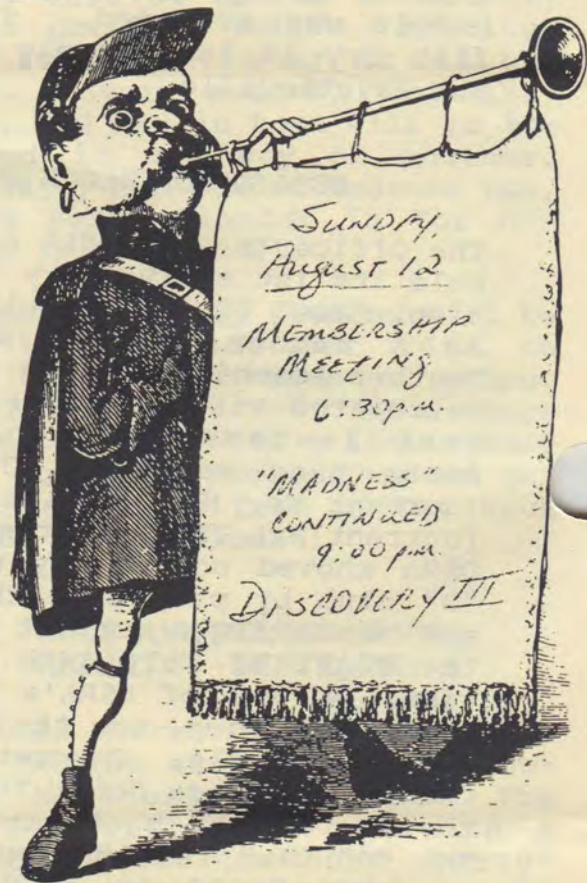 SUNDAY
August 12
MEMBERSHIP
MEETING
6:30 p.m.
"MADNESS"
CONTINUED
9:00 p.m.
DISCOVERY III